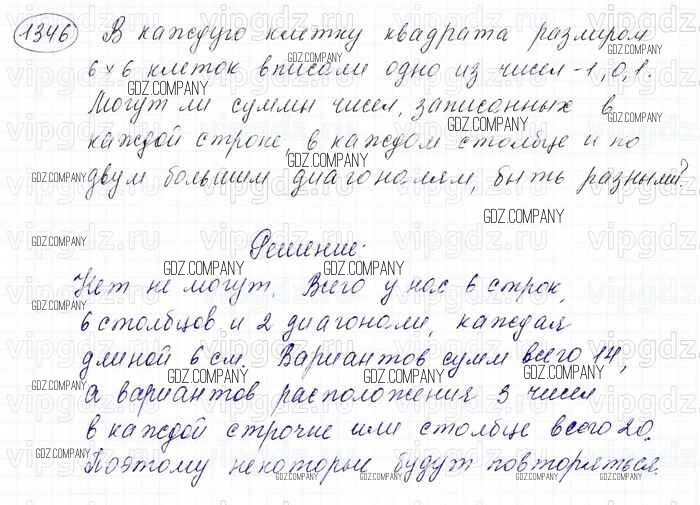 1346 В каждую клетку квадрата размером
6×6 клеток вписали одно из чисел -1, 0, 1.
Могут ли суммы чисел, записанных в
каждой строке, в каждом столбце и по
двум большим диагоналям, быть разными?
Решение.
Нет не могут. Всего у нас 6 строк,
6 столбцов и 2 диагонали, каждая
длиной 6 см. Вариантов сумм всего 14,
а вариантов расположения 3 чисел
в каждой строчке или столбце всего 20.
Поэтому некоторые будут повторяться.